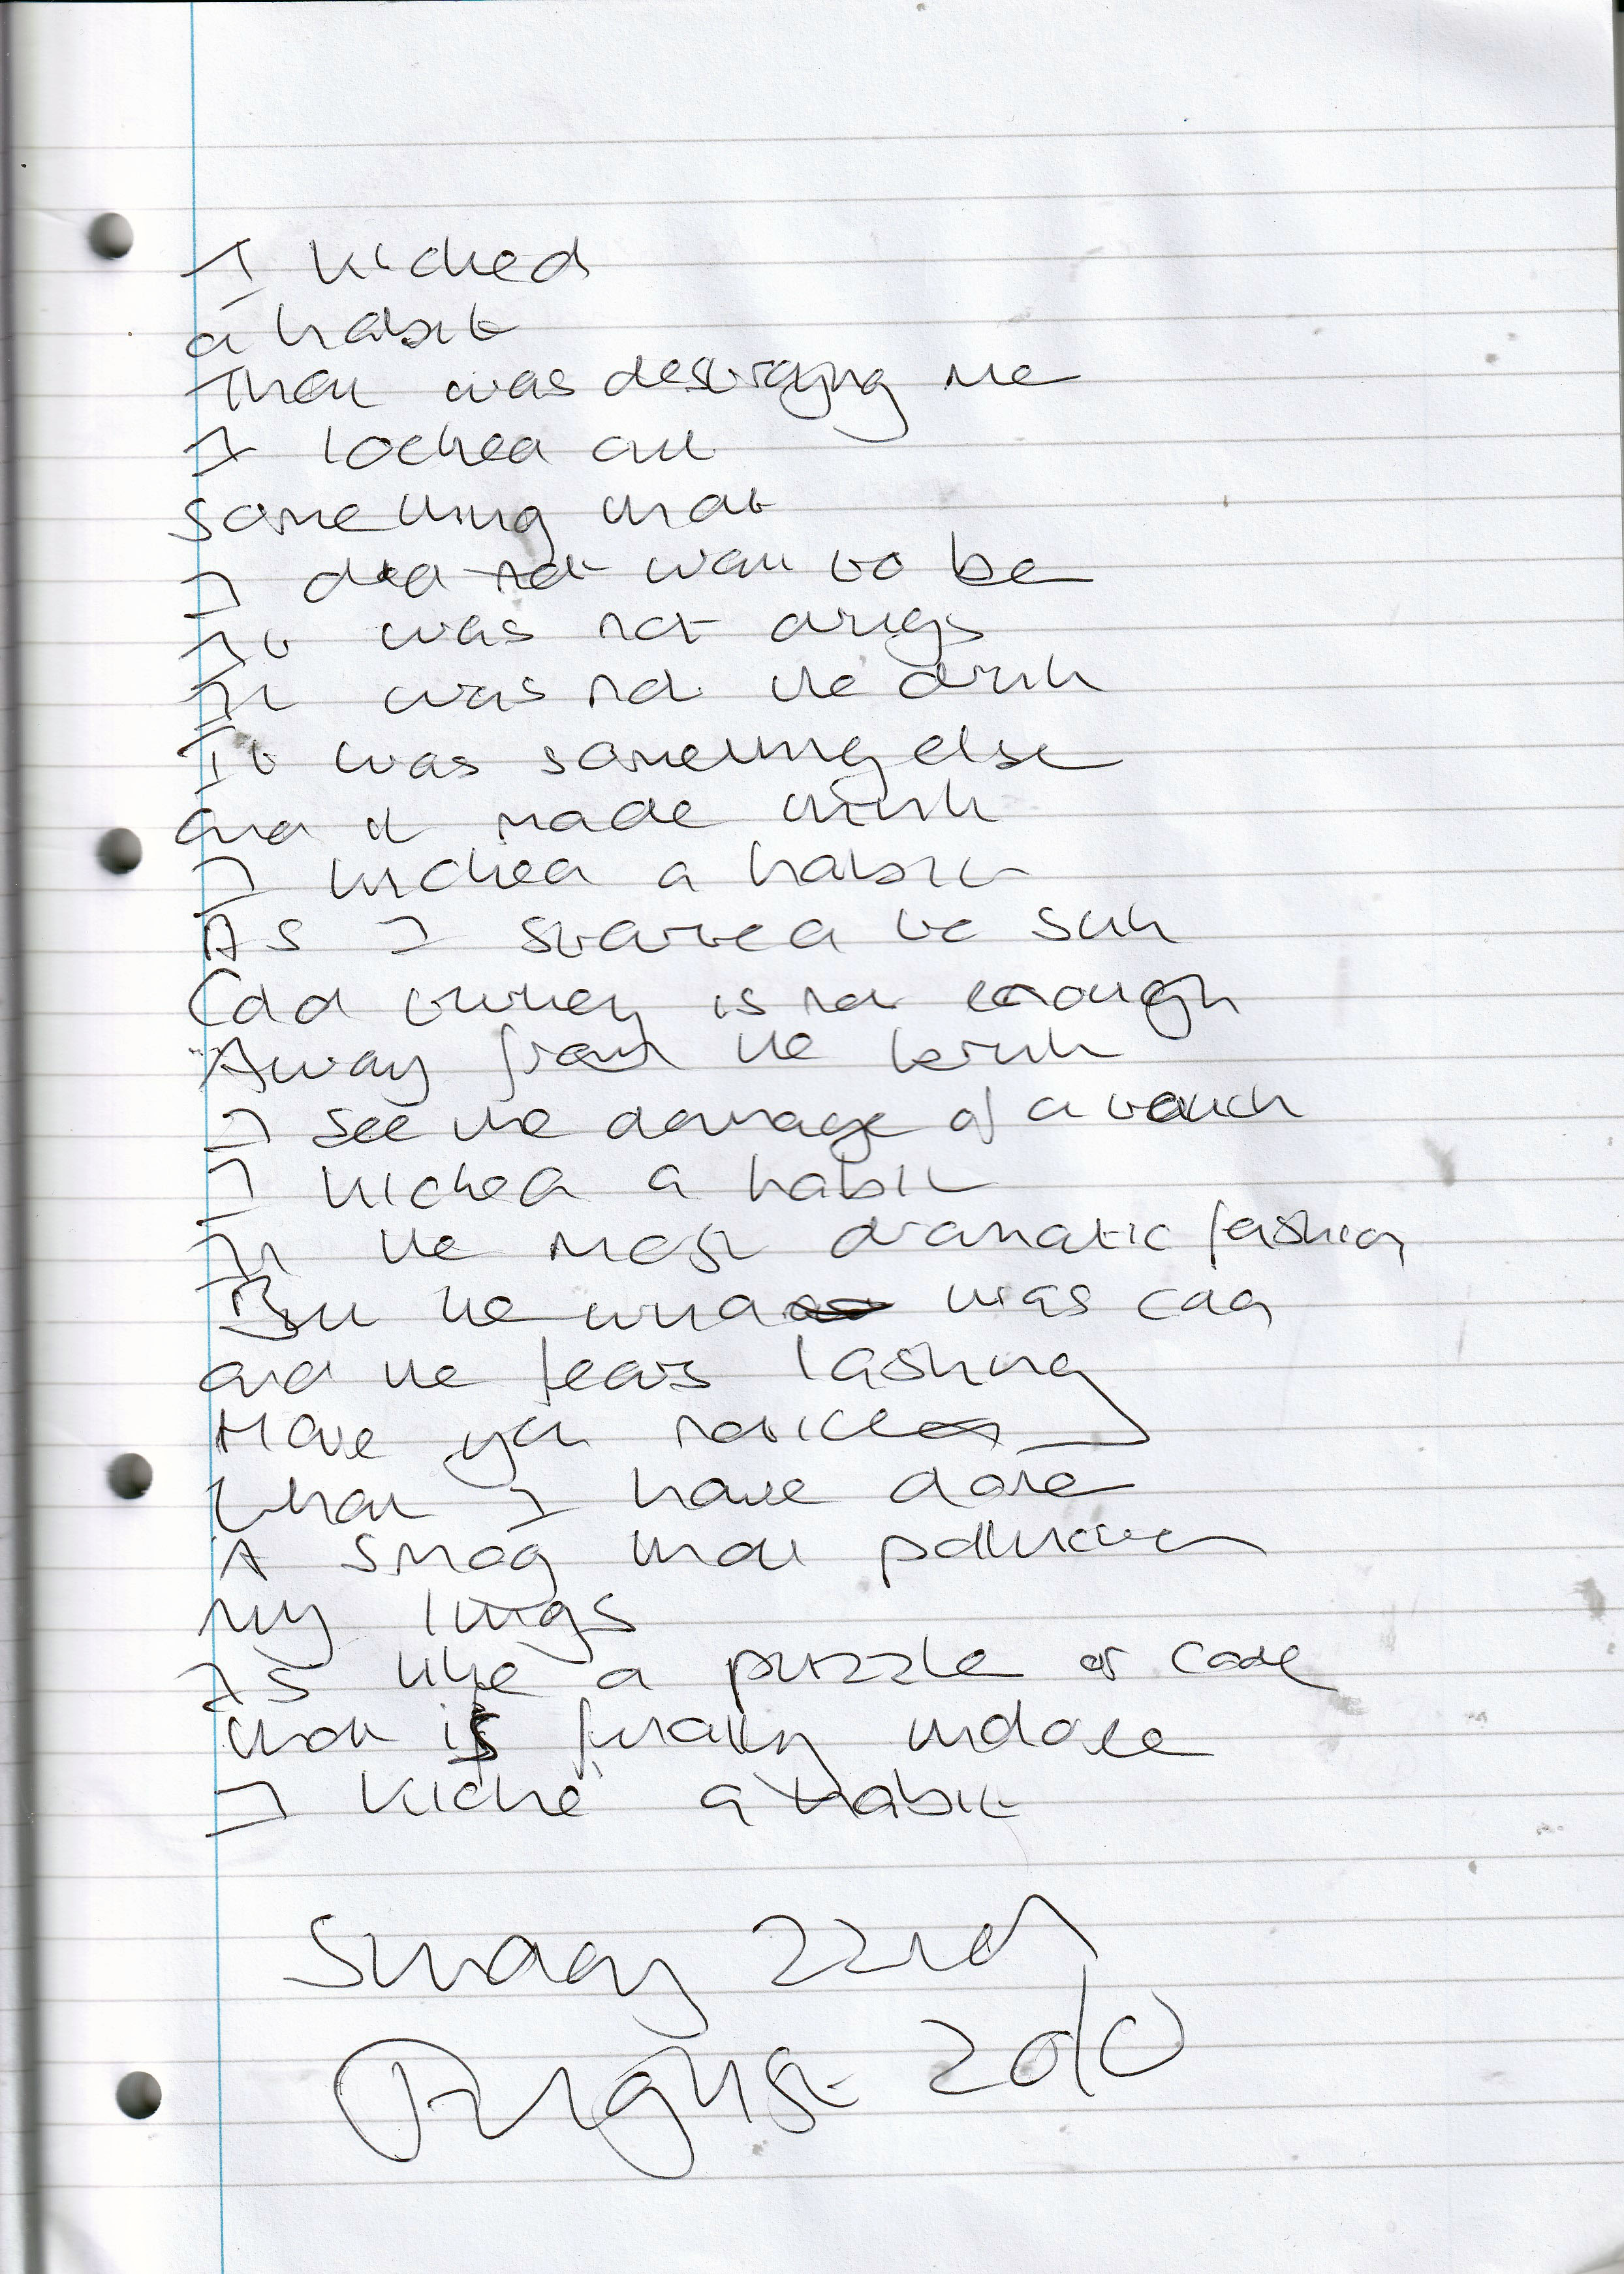 I kicked
a habit
That was destroying me
I locked out
something that
I did not want to be
It was not drugs
It was not the drink
It was something else
and it made think
I kicked a habit
As I started to sink
Cold turkey is not enough
Away from the brink
I see the damage of a touch
I kicked a habit
In the most dramatic fashion
But the wind was cold
and the tears lashing
Have you noticed
What I have done
A smog that pollutes
my lungs
Is like a puzzle or code
that is finally undone
I kicked a habit
Sunday 22nd
August 2010